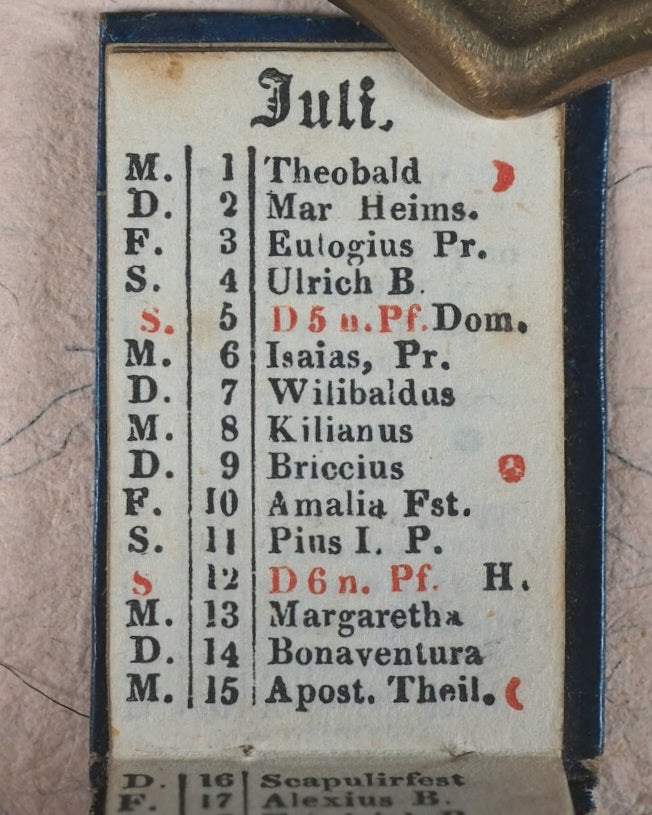 Juli.
M. 1 Theobald
D. 2 Mar Heims.
F. 3 Eulogius Pr.
S. 4 Ulrich B.
S. 5 D 5 n. Pf. Dom.
M. 6 Isaias, Pr.
D. 7 Wilibaldus
M. 8 Kilianus
D. 9 Briccius
F. 10 Amalia Fst.
S. 11 Pius I. P.
S 12 D 6 n. Pf. H.
M. 13 Margaretha
D. 14 Bonaventura
M. 15 Apost. Theil.
D. 16 Scapulirfest
F. 17 Alexius B.